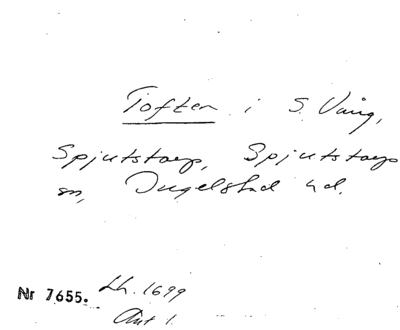 Toften i S. Vång,
Spjutstorp, Spjutstorp
sn, Ingelstad hd.
Nr 7655. Lh. 1699
Akt 1.